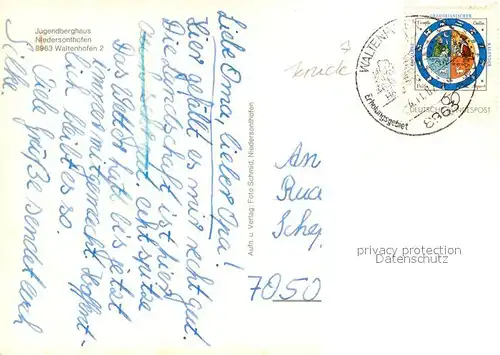 Jugendberghaus
Niedersonthofen
8963 Waltenhofen 2
Liebe Oma, lieber Opa!
Hier gefällt es mir recht gut.
Die Landschaft ist hier
echt spitze
Das Wetter hat bis jetzt
immer mitgemacht. Hoffent-
lich bleibt es so.
Viele Grüße sendet euch
Silke
Aufn. u. Verlag: Foto Schmid, Niedersonthofen
An
7050
WALTENH
Erholungsgebiet
8963
GREGORIANISCHER
DEUTSCHE BUNDESPOST
privacy protection
Datenschutz